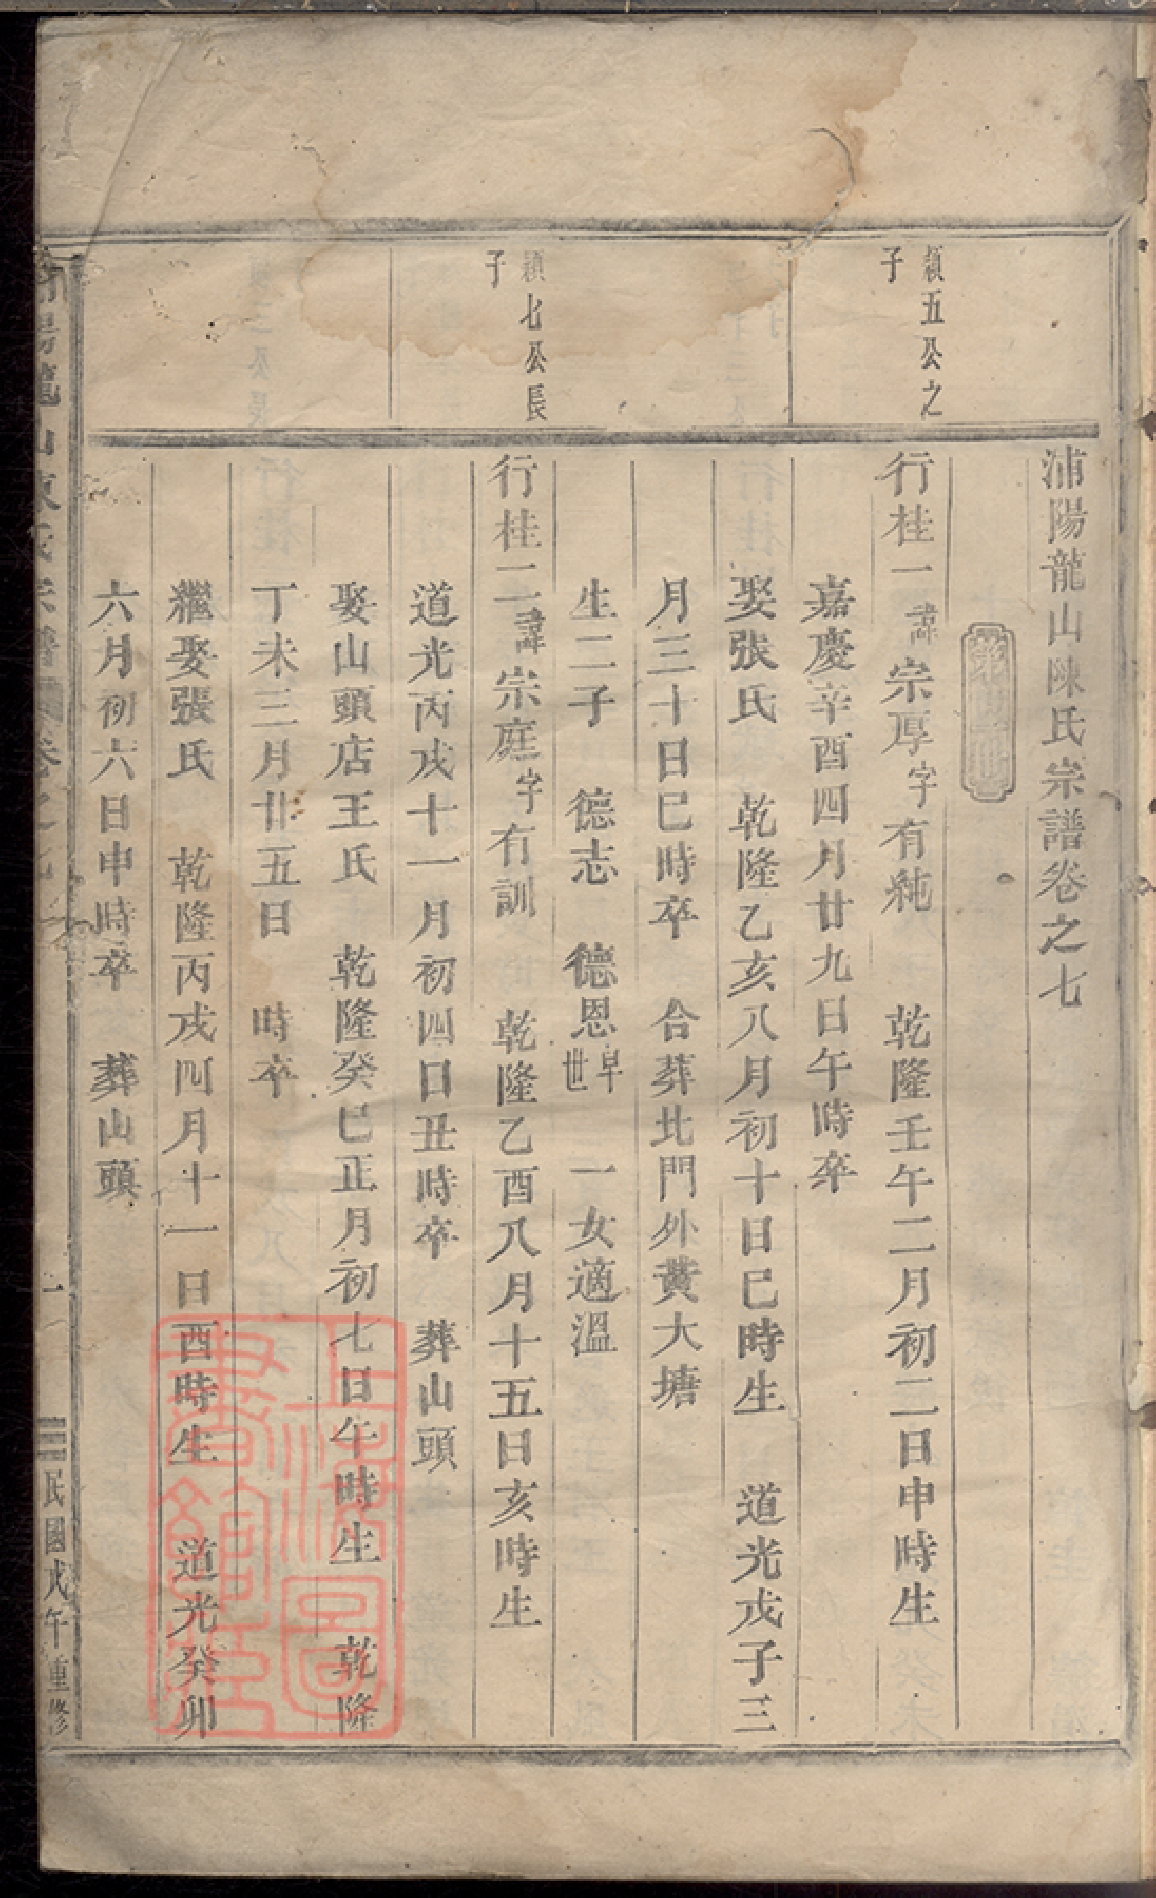 浦陽龍山陳氏宗譜卷之七
穎五公之
子
行桂一諱宗厚字有純 乾隆壬午二月初二日申時生
嘉慶辛酉四月廿九日午時卒
娶張氏 乾隆乙亥八月初十日巳時生 道光戊子三
月三十日巳時卒 合葬北門外黃大塘
生二子 德志 德恩早世 一女適溫
穎七公長
子
行桂二諱宗庭字有訓 乾隆乙酉八月十五日亥時生
道光丙戌十一月初四日丑時卒 葬山頭
娶山頭店王氏 乾隆癸巳正月初七日午時生 乾隆
丁未三月廿五日 時卒
繼娶張氏 乾隆丙戌四月十一日酉時生 道光癸卯
六月初六日申時卒 葬山頭
陽龍山陳氏宗譜 卷之七 一 民國戊午重修
上海圖書館藏